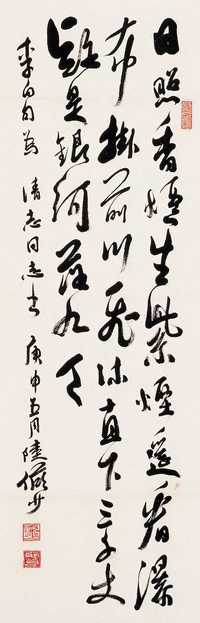 日照香炉生紫烟遥看瀑
布掛前川飛流直下三千丈
疑是銀河落九天
李白句为 清志同志书 庚申五月陸儼少